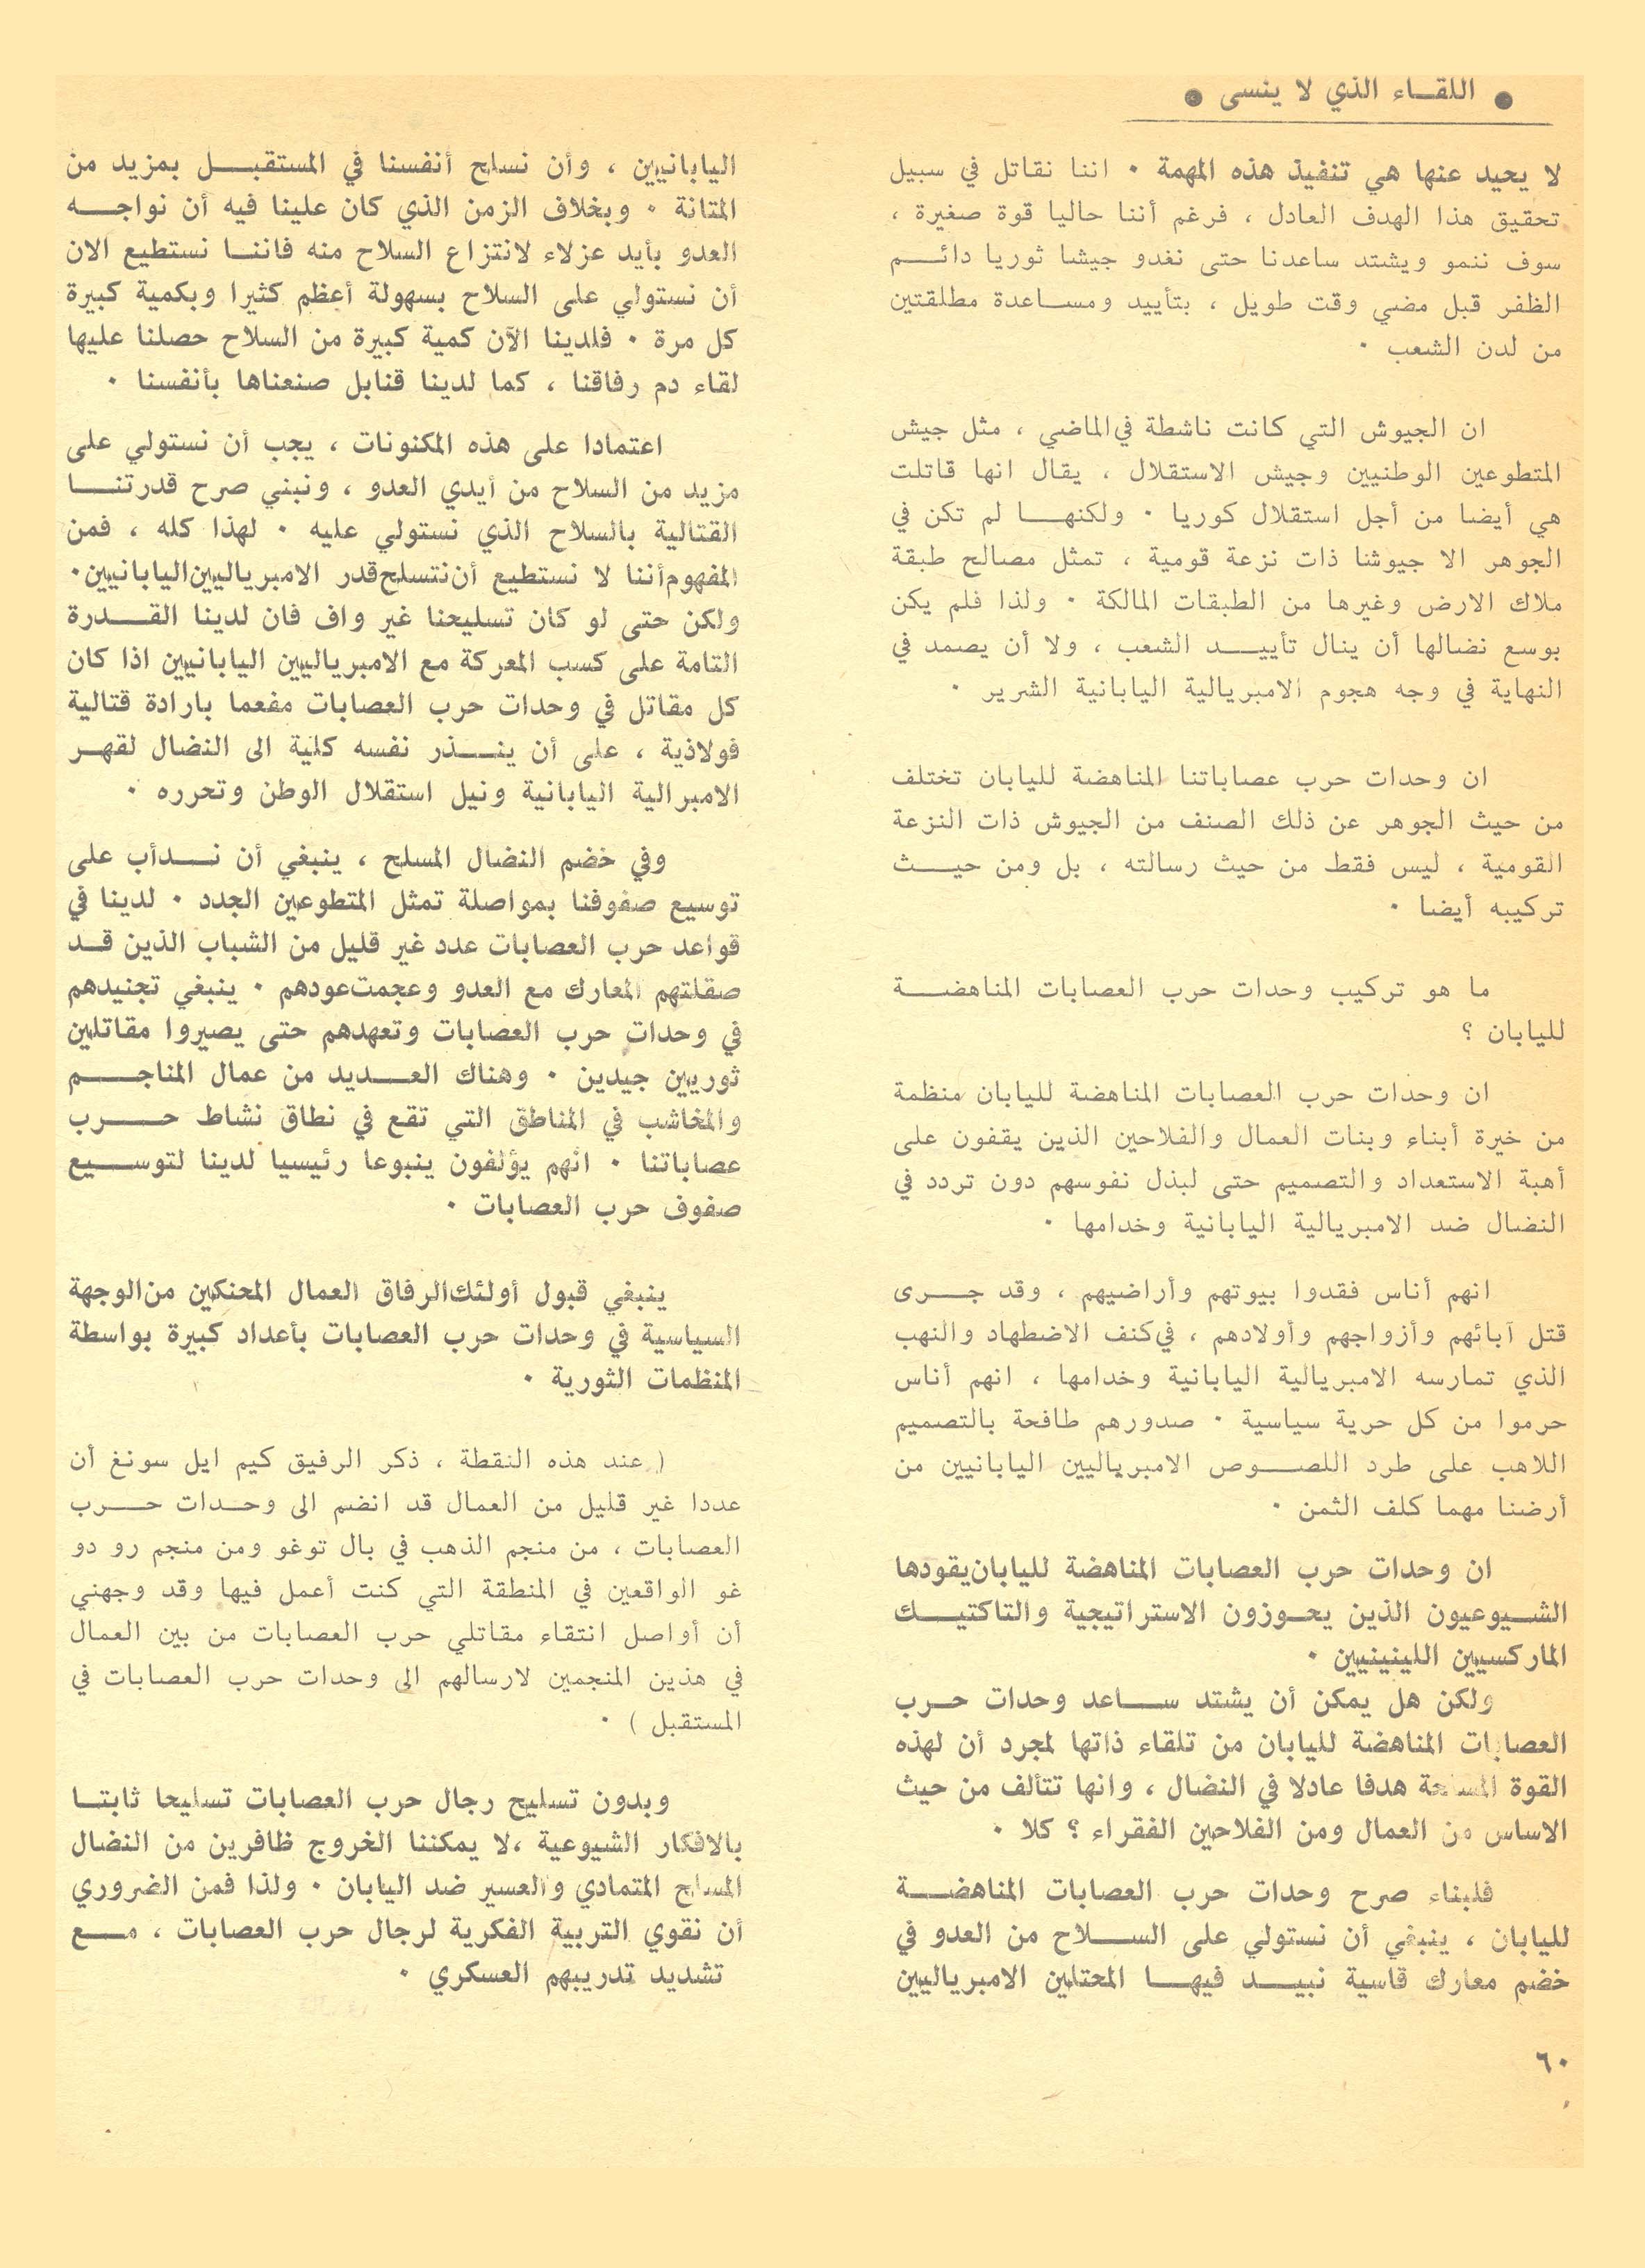 • اللقاء الذي لا ينسى •
لا يحيد عنها هي تنفيذ هذه المهمة . اننا نقاتل في سبيل
تحقيق هذا الهدف العادل ، فرغم أننا حاليا قوة صغيرة ،
سوف ننمو ويشتد ساعدنا حتى نغدو جيشا ثوريا دائم
الظفر قبل مضي وقت طويل ، بتأييد ومساعدة مطلقتين
من لدن الشعب .
ان الجيوش التي كانت ناشطة في الماضي ، مثل جيش
المتطوعين الوطنيين وجيش الاستقلال ، يقال انها قاتلت
هي أيضا من أجل استقلال كوريا . ولكنها لم تكن في
الجوهر الا جيوشنا ذات نزعة قومية ، تمثل مصالح طبقة
ملاك الارض وغيرها من الطبقات المالكة . ولذا فلم يكن
بوسع نضالها أن ينال تأييد الشعب ، ولا أن يصمد في
النهاية في وجه هجوم الامبريالية اليابانية الشرير .
ان وحدات حرب عصاباتنا المناهضة لليابان تختلف
من حيث الجوهر عن ذلك الصنف من الجيوش ذات النزعة
القومية ، ليس فقط من حيث رسالته ، بل ومن حيث
تركيبه أيضا .
ما هو تركيب وحدات حرب العصابات المناهضة
لليابان ؟
ان وحدات حرب العصابات المناهضة لليابان منظمة
من خيرة أبناء وبنات العمال والفلاحين الذين يقفون على
أهبة الاستعداد والتصميم حتى لبذل نفوسهم دون تردد في
النضال ضد الامبريالية اليابانية وخدامها .
انهم أناس فقدوا بيوتهم وأراضيهم ، وقد جرى
قتل آبائهم وأزواجهم وأولادهم ، في كنف الاضطهاد والنهب
الذي تمارسه الامبريالية اليابانية وخدامها ، انهم أناس
حرموا من كل حرية سياسية . صدورهم طافحة بالتصميم
اللاهب على طرد اللصوص الامبرياليين اليابانيين من
أرضنا مهما كلف الثمن .
ان وحدات حرب العصابات المناهضة لليابان يقودها
الشيوعيون الذين يحوزون الاستراتيجية والتاكتيك
الماركسيين اللينينيين .
ولكن هل يمكن أن يشتد ساعد وحدات حرب
العصابات المناهضة لليابان من تلقاء ذاتها لمجرد أن لهذه
القوة المسلحة هدفا عادلا في النضال ، وانها تتألف من حيث
الاساس من العمال ومن الفلاحين الفقراء ؟ كلا .
فلبناء صرح وحدات حرب العصابات المناهضة
لليابان ، ينبغي أن نستولي على السلاح من العدو في
خضم معارك قاسية نبيد فيها المحتلين الامبرياليين
اليابانيين ، وأن نسلح أنفسنا في المستقبل بمزيد من
المتانة . وبخلاف الزمن الذي كان علينا فيه أن نواجه
العدو بأيد عزلاء لانتزاع السلاح منه فاننا نستطيع الان
أن نستولي على السلاح بسهولة أعظم كثيرا وبكمية كبيرة
كل مرة . فلدينا الآن كمية كبيرة من السلاح حصلنا عليها
لقاء دم رفاقنا ، كما لدينا قنابل صنعناها بأنفسنا .
اعتمادا على هذه المكنونات ، يجب أن نستولي على
مزيد من السلاح من أيدي العدو ، ونبني صرح قدرتنا
القتالية بالسلاح الذي نستولي عليه . لهذا كله ، فمن
المفهوم أننا لا نستطيع أن نتسلح قدر الامبرياليين اليابانيين.
ولكن حتى لو كان تسليحنا غير واف فان لدينا القدرة
التامة على كسب المعركة مع الامبرياليين اليابانيين اذا كان
كل مقاتل في وحدات حرب العصابات مفعما بارادة قتالية
فولاذية ، على أن ينذر نفسه كلية الى النضال لقهر
الامبرالية اليابانية ونيل استقلال الوطن وتحرره .
وفي خضم النضال المسلح ، ينبغي أن ندأب على
توسيع صفوفنا بمواصلة تمثل المتطوعين الجدد . لدينا في
قواعد حرب العصابات عدد غير قليل من الشباب الذين قد
صقلتهم المعارك مع العدو وعجمت عودهم . ينبغي تجنيدهم
في وحدات حرب العصابات وتعهدهم حتى يصيروا مقاتلين
ثوريين جيدين . وهناك العديد من عمال المناجم
والمخاشب في المناطق التي تقع في نطاق نشاط حرب
عصاباتنا . انهم يؤلفون ينبوعا رئيسيا لدينا لتوسيع
صفوف حرب العصابات .
ينبغي قبول أولئك الرفاق العمال المحنكين من الوجهة
السياسية في وحدات حرب العصابات بأعداد كبيرة بواسطة
المنظمات الثورية .
( عند هذه النقطة ، ذكر الرفيق كيم ايل سونغ أن
عددا غير قليل من العمال قد انضم الى وحدات حرب
العصابات ، من منجم الذهب في بال توغو ومن منجم رو دو
غو الواقعين في المنطقة التي كنت أعمل فيها وقد وجهني
أن أواصل انتقاء مقاتلي حرب العصابات من بين العمال
في هذين المنجمين لارسالهم الى وحدات حرب العصابات في
المستقبل ) .
وبدون تسليح رجال حرب العصابات تسليحا ثابتا
بالافكار الشيوعية ،لا يمكننا الخروج ظافرين من النضال
المسلح المتمادي والعسير ضد اليابان . ولذا فمن الضروري
أن نقوي التربية الفكرية لرجال حرب العصابات ، مع
تشديد تدريبهم العسكري .
٦٠